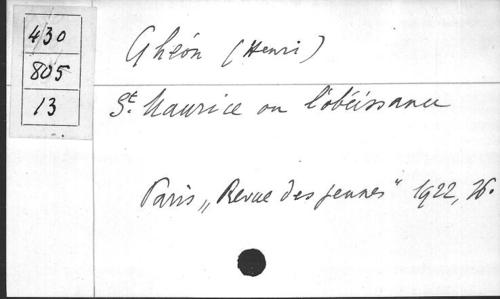 430
805
13
Ghéon (Henri)
St. Maurice ou l'obéissance
Paris „Revue des jeunes" 1922, 16.